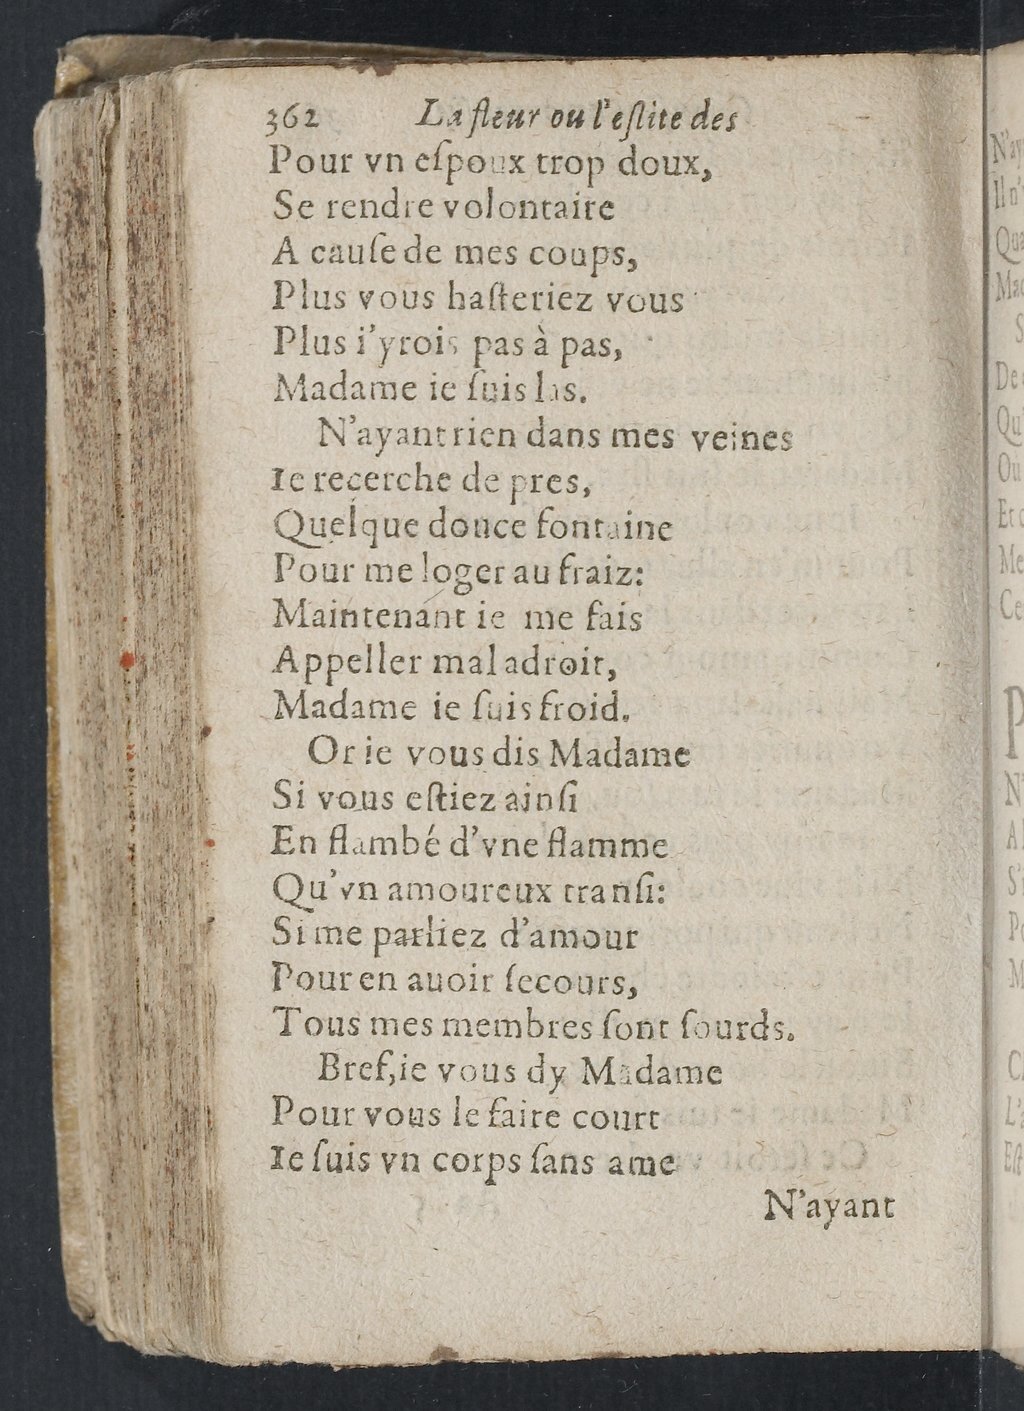 362 La fleur ou l'eſlite des
Pour vn eſpoux trop doux,
Se rendre volontaire
A cauſe de mes coups,
Plus vous haſteriez vous
Plus i'yrois pas à pas,
Madame ie ſuis las.
N'ayant rien dans mes veines
Ie recerche de pres,
Quelque douce fontaine
Pour me loger au fraiz:
Maintenant ie me fais
Appeller mal adroit,
Madame ie ſuis froid.
Or ie vous dis Madame
Si vous eſtiez ainſi
En flambé d'vne flamme
Qu'vn amoureux tranſi:
Si me parliez d'amour
Pour en auoir ſecours,
Tous mes membres ſont ſourds.
Bref, ie vous dy Madame
Pour vous le faire court
Ie ſuis vn corps ſans ame
N'ayant